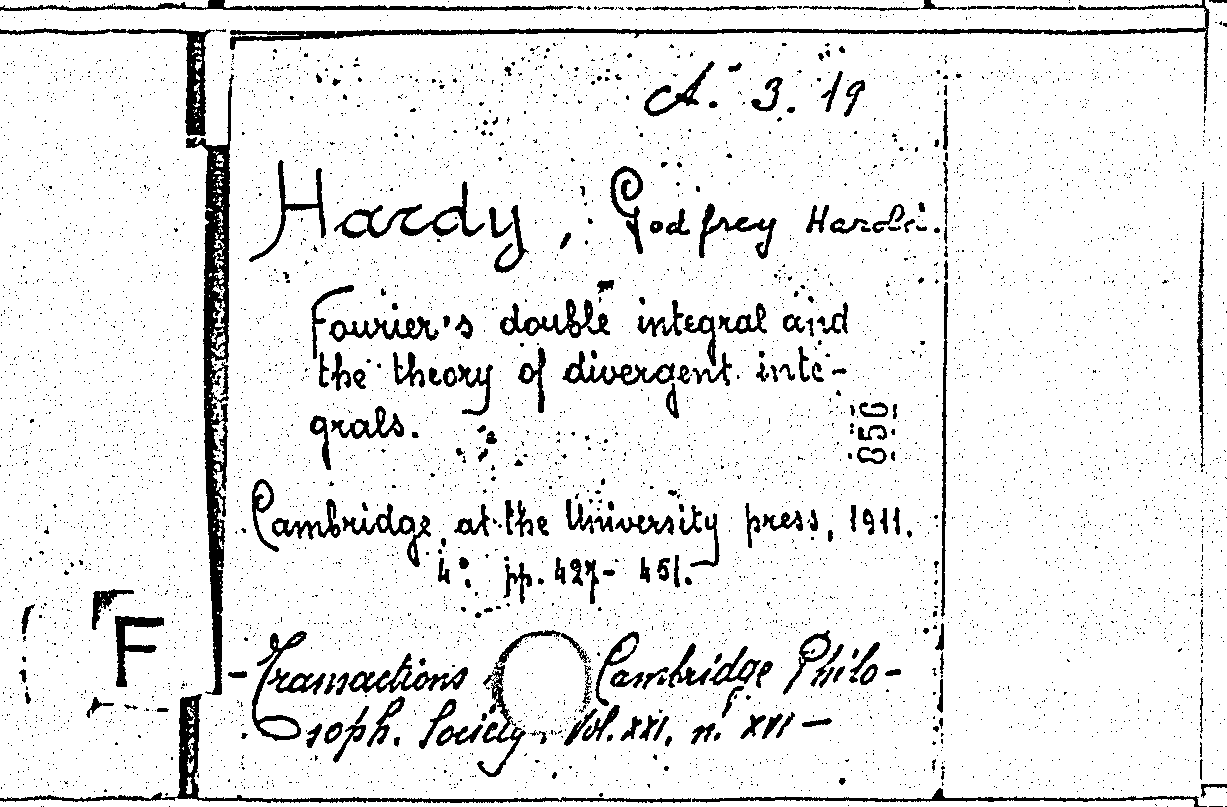 A. 3. 19
Hardy, Godfrey Harold.
Fourier's double integral and
the theory of divergent inte-
grals.
850
Cambridge, at the University press, 1911.
4°. pp. 427-451.
F
- Transactions Cambridge Philo-
soph. Society. Vol. XXI, n. XVI -